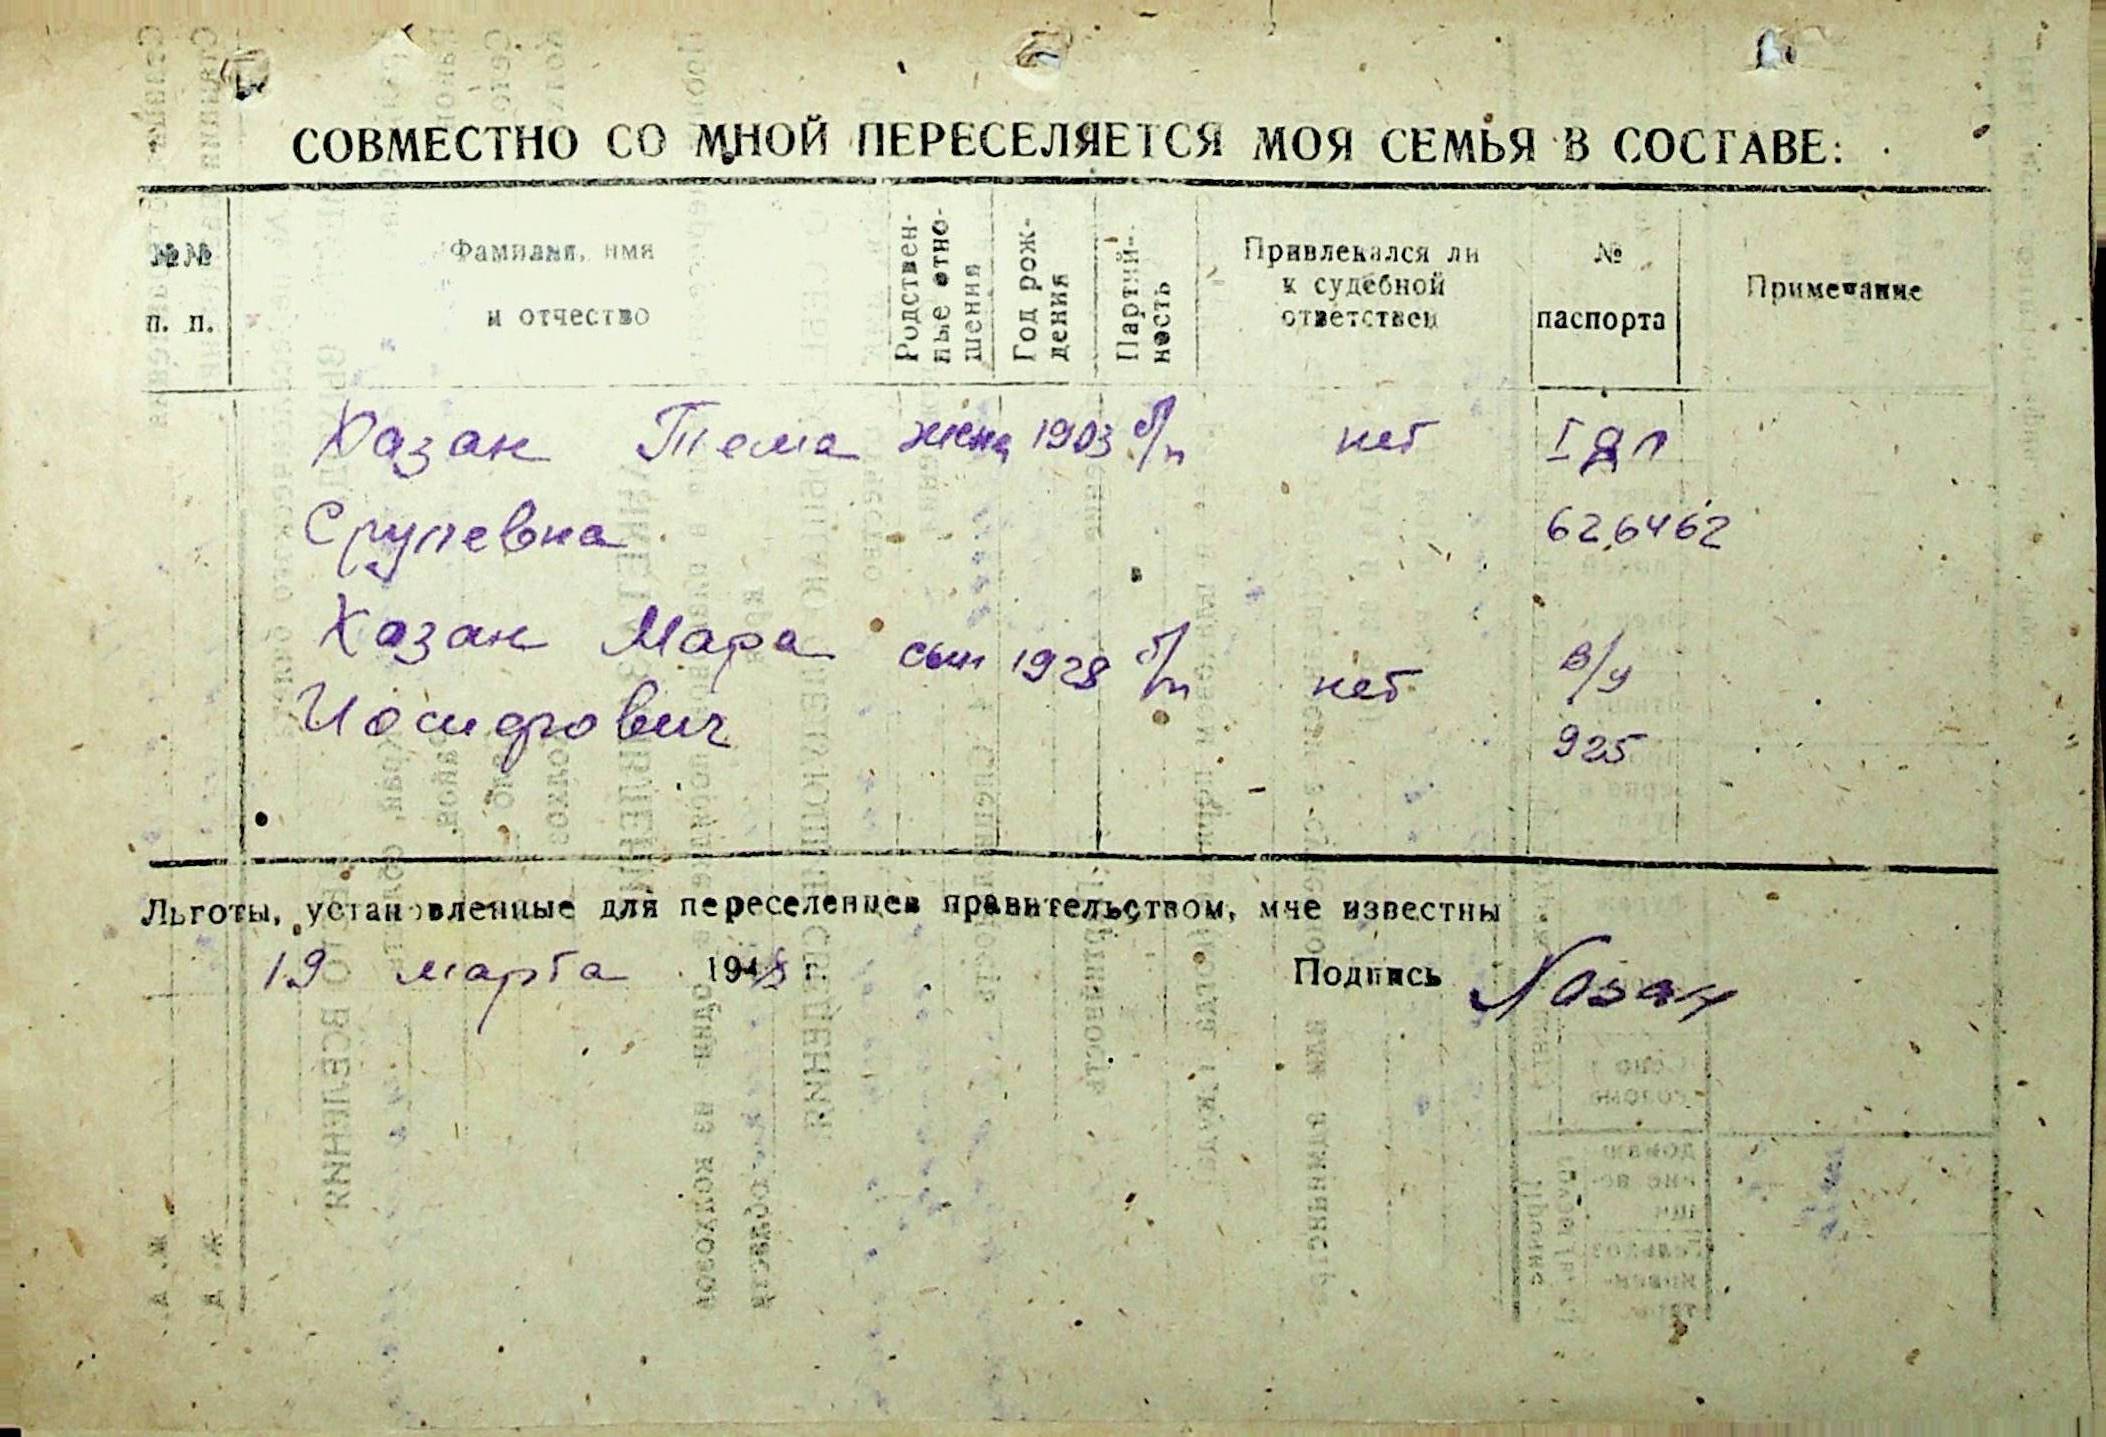 СОВМЕСТНО СО МНОЙ ПЕРЕСЕЛЯЕТСЯ МОЯ СЕМЬЯ В СОСТАВЕ:
№№ п. п.
Фамилия, имя и отчество
Родствен-
ные отно-
шения
Год рож-
дения
Партий-
ность
Привлекался ли
к судебной
ответствен
№
паспорта
Примечание
Хазан Тема жена 1903 б/п нет
626462
Хазан Мара сын 1928 б/п нет в/у
Иосифович 925
Льготы, установленные для переселенцев правительством, мне известны
19 марта 1948 г. Подпись Хазан